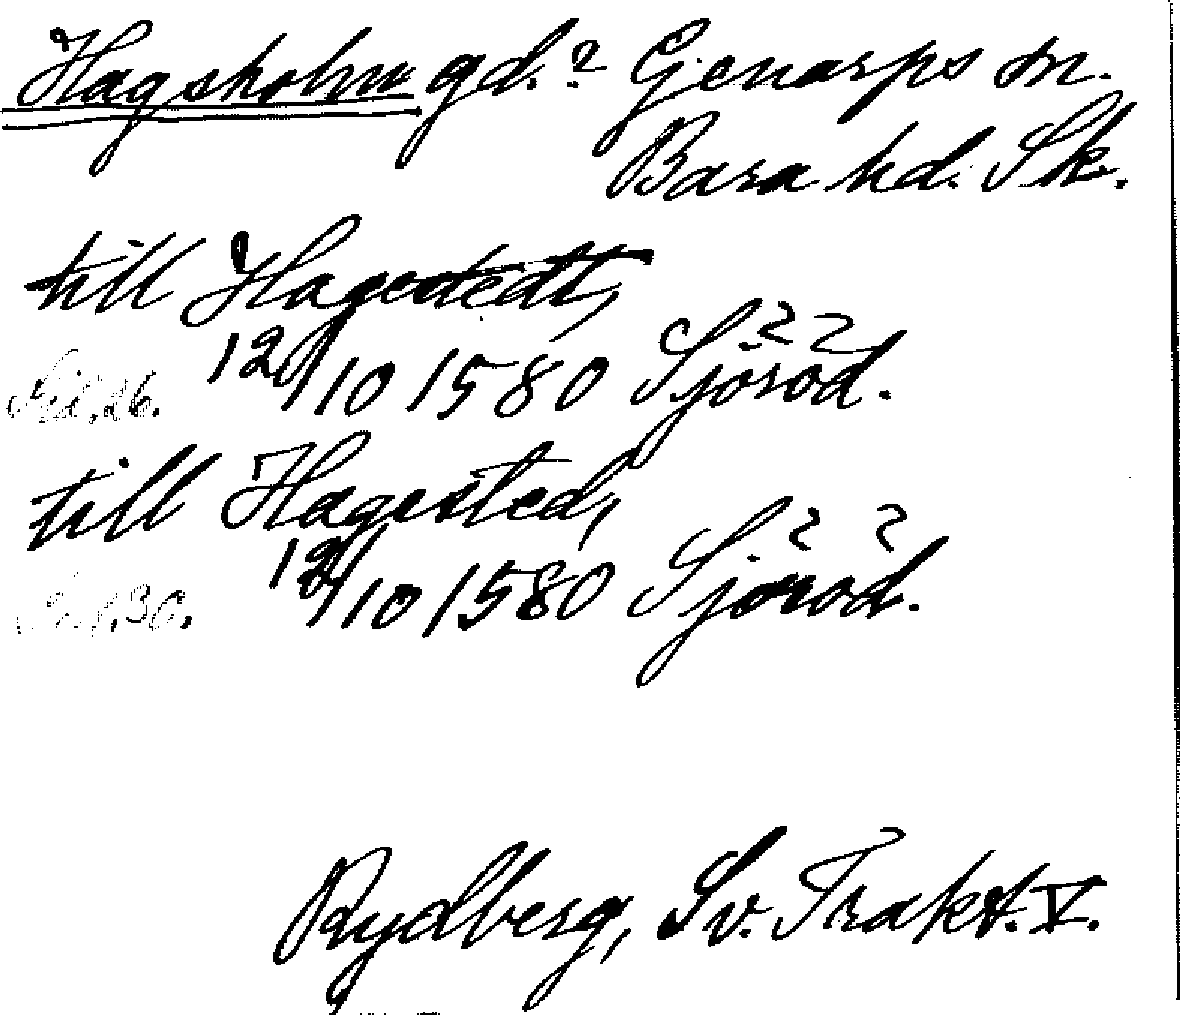 Hagsholm gd.? Genarps sn.
Bara hd. Sk.
till Hagestedt,
12/10 1580 Sjöröd.
till Hagested,
12/10 1580 Sjöröd.
Rydberg, Sv. Trakt. V.